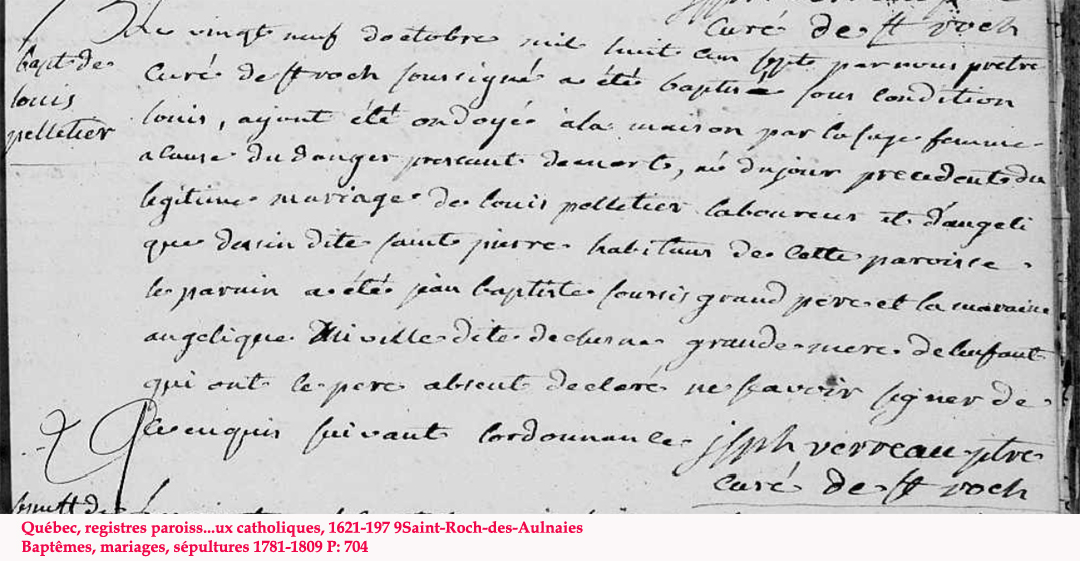 curé de st roch
bapt de
louis
pelletier
Le vingt neuf doctobre mil huit cen sept par nous pretre
curé de st roch soussigné a été baptisé sous condition
louis, ayant été ondoyé à la maison par la sage femme
a cause du danger present de mort, né du jour precedent du
legitime mariage de louis pelletier laboureur et d'angeli
que dessin dite saint pierre habitans de cette paroisse
le parain a été jean baptiste soussis grand pere et la maraine
angelique Miville dite dechene grande mere de lenfant
qui ont le pere absent declaré ne scavoir signer de
ce enquis suivant lordonnance. jsph verreau ptre
curé de st roch
Québec, registres paroiss...ux catholiques, 1621-197 9Saint-Roch-des-Aulnaies
Baptêmes, mariages, sépultures 1781-1809 P: 704